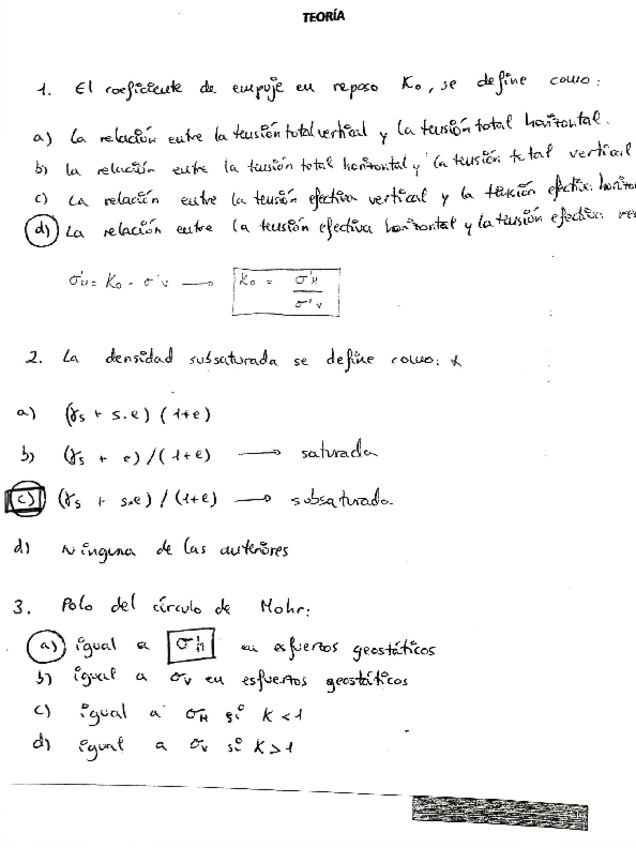 TEORÍA
1. El coeficiente de empuje en reposo K₀, se define como:
a) la relación entre la tensión total vertical y la tensión total horizontal.
b) la relación entre la tensión total horizontal y la tensión total vertical
c) La relación entre la tensión efectiva vertical y la tensión efectiva horizon
d) La relación entre la tensión efectiva horizontal y la tensión efectiva ve
σ'H = K₀ · σ'v → K₀ = σ'H / σ'v
2. La densidad subsaturada se define como: *
a) (γs + s.e) (1+e)
b) (γs + e) / (1+e) → saturada
c) (γs + s.e) / (1+e) → subsaturada
d) Ninguna de las anteriores
3. Polo del círculo de Mohr:
a) igual a σ'H en esfuerzos geostáticos
b) igual a σv en esfuerzos geostáticos
c) igual a σH si K<1
d) igual a σv si K>1